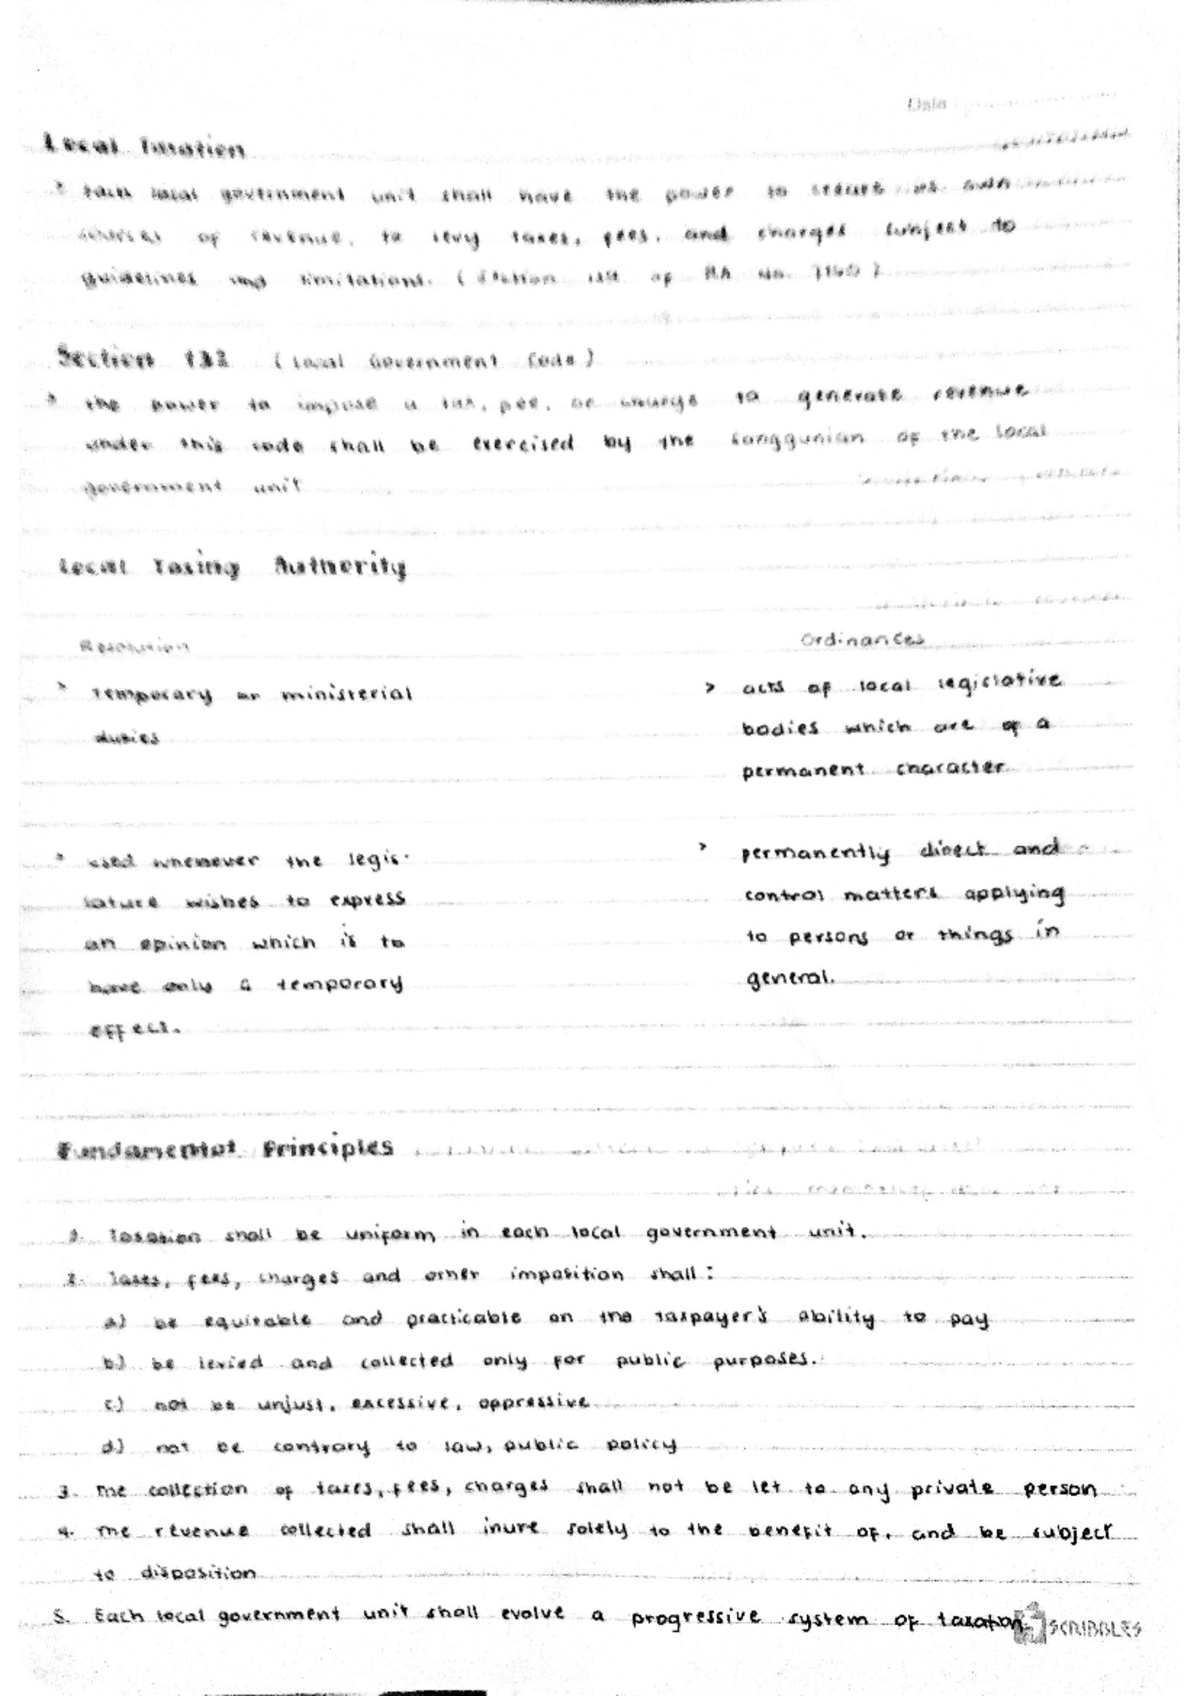 Date
Local Taxation
> Each local government unit shall have the power to create its own
sources of revenue, to levy taxes, fees, and charges subject to
guidelines and limitations. ( Section of RA No. 7160 )
Section 132 ( Local Government Code )
> the power to impose a tax, fee, or charge to generate revenue
under this code shall be exercised by the Sanggunian of the local
government unit
Local Taxing Authority
Resolution
> Temporary or ministerial
duties
> used whenever the legis-
lature wishes to express
an opinion which is to
have only a temporary
effect.
Ordinances
> acts of local legislative
bodies which are of a
permanent character
> permanently direct and
control matters applying
to persons or things in
general.
Fundamental Principles
1. Taxation shall be uniform in each local government unit.
2. Taxes, fees, charges and other imposition shall:
a) be equitable and practicable on the taxpayer's ability to pay
b) be levied and collected only for public purposes.
c) not be unjust, excessive, oppressive
d) not be contrary to law, public policy
3. The collection of taxes, fees, charges shall not be let to any private person
4. The revenue collected shall inure solely to the benefit of, and be subject
to disposition
5. Each local government unit shall evolve a progressive system of taxation
SCRIBBLES